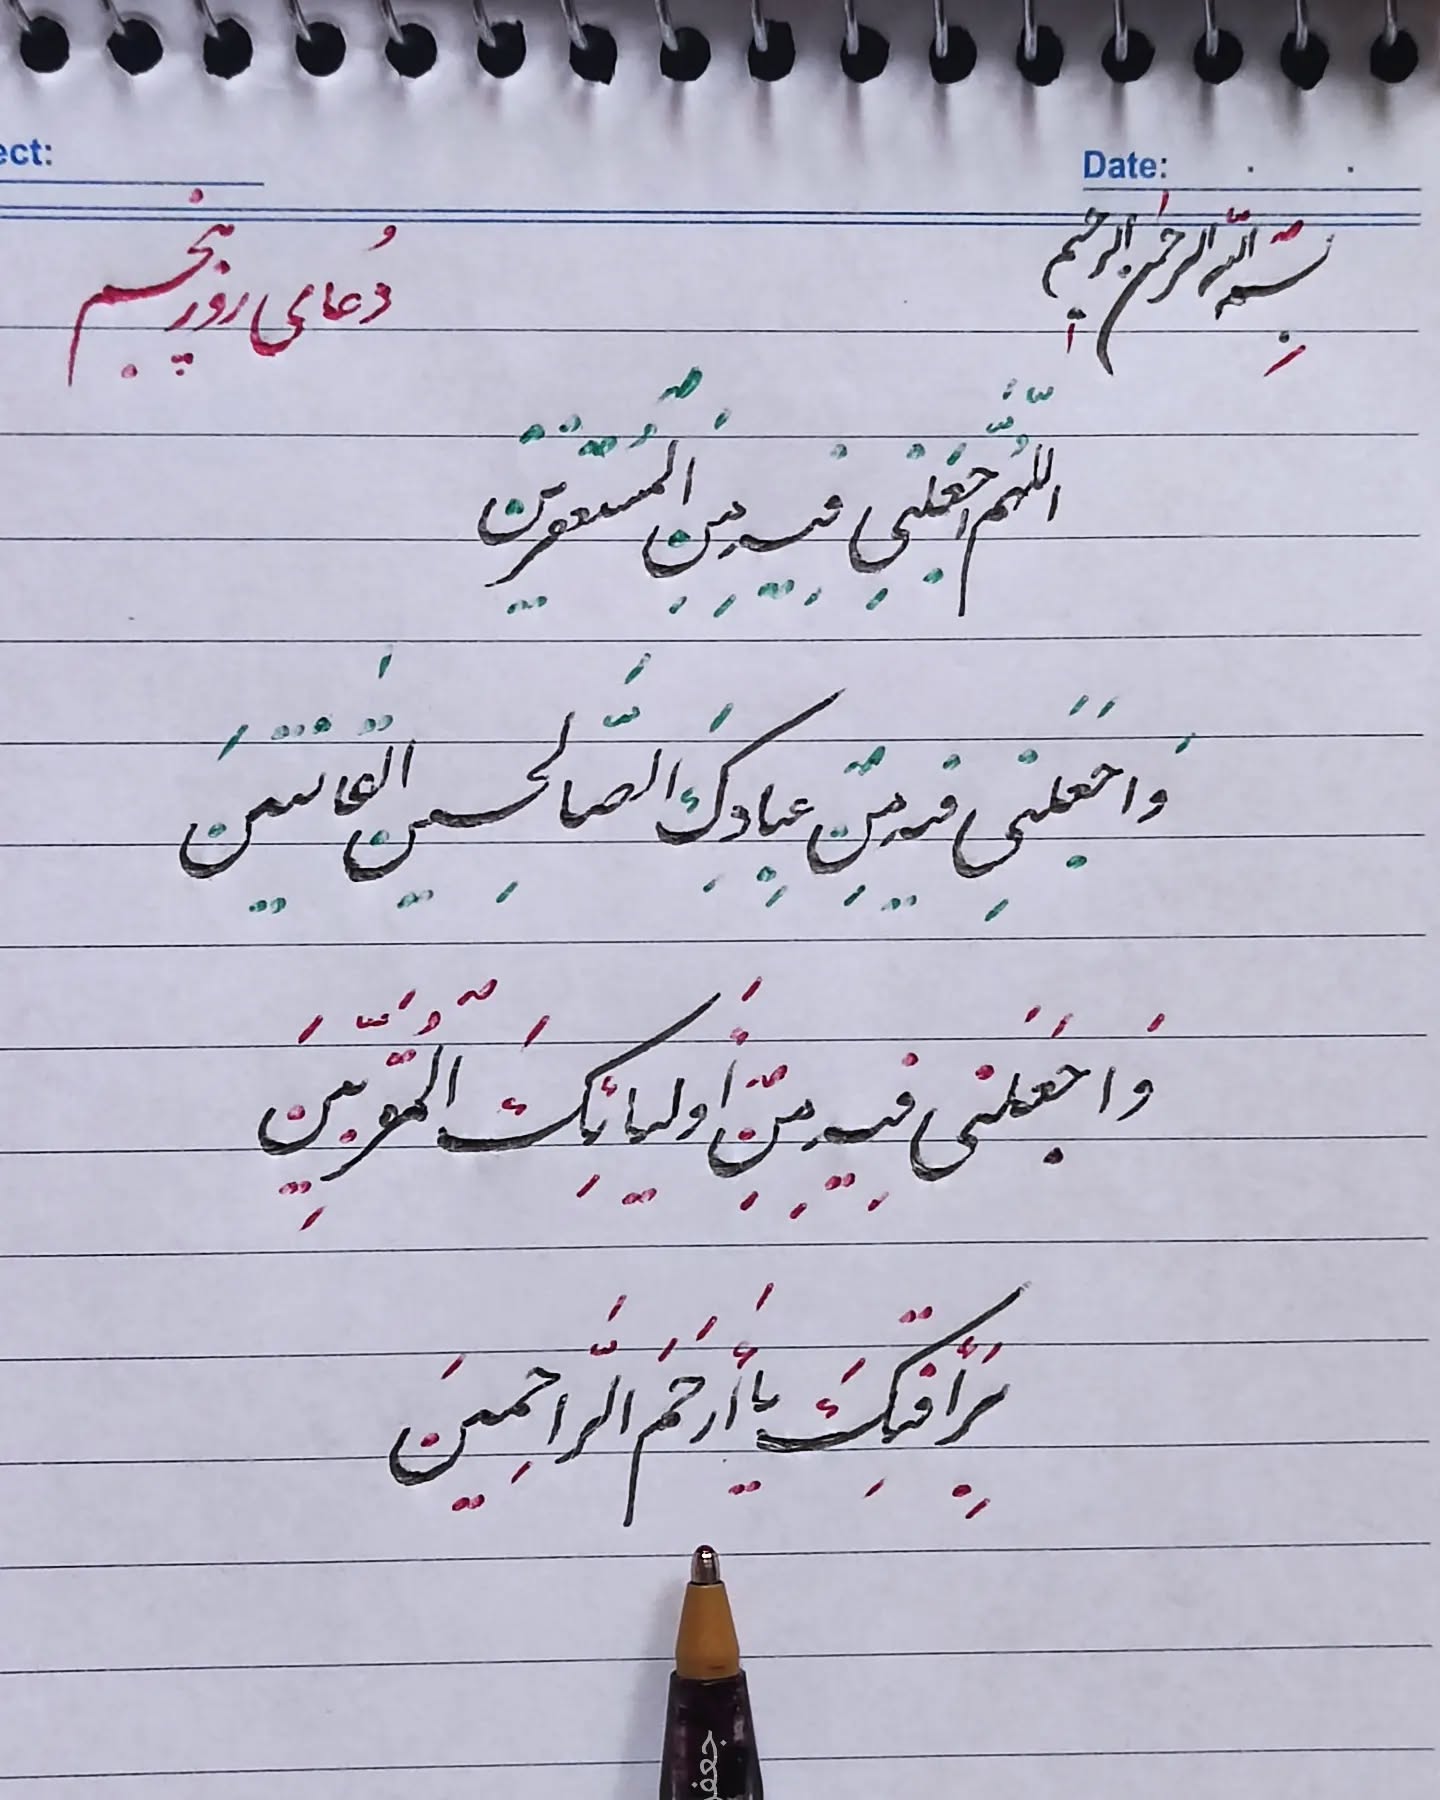 Date:
ect:
بِسْمِ اللّٰهِ الرَّحْمٰنِ الرَّحیمِ
دُعای روز پنجم
اللّٰهُمَّ اجْعَلْنی فیهِ مِنَ الْمُسْتَغْفِرینَ
وَاجْعَلْنی فیهِ مِنْ عِبادِکَ الصّالِحینَ الْقانِتینَ
وَاجْعَلْنی فیهِ مِنْ أَولیائِکَ الْمُقَرَّبینَ
بِرَأفَتِکَ یا أَرْحَمَ الرّاحِمینَ